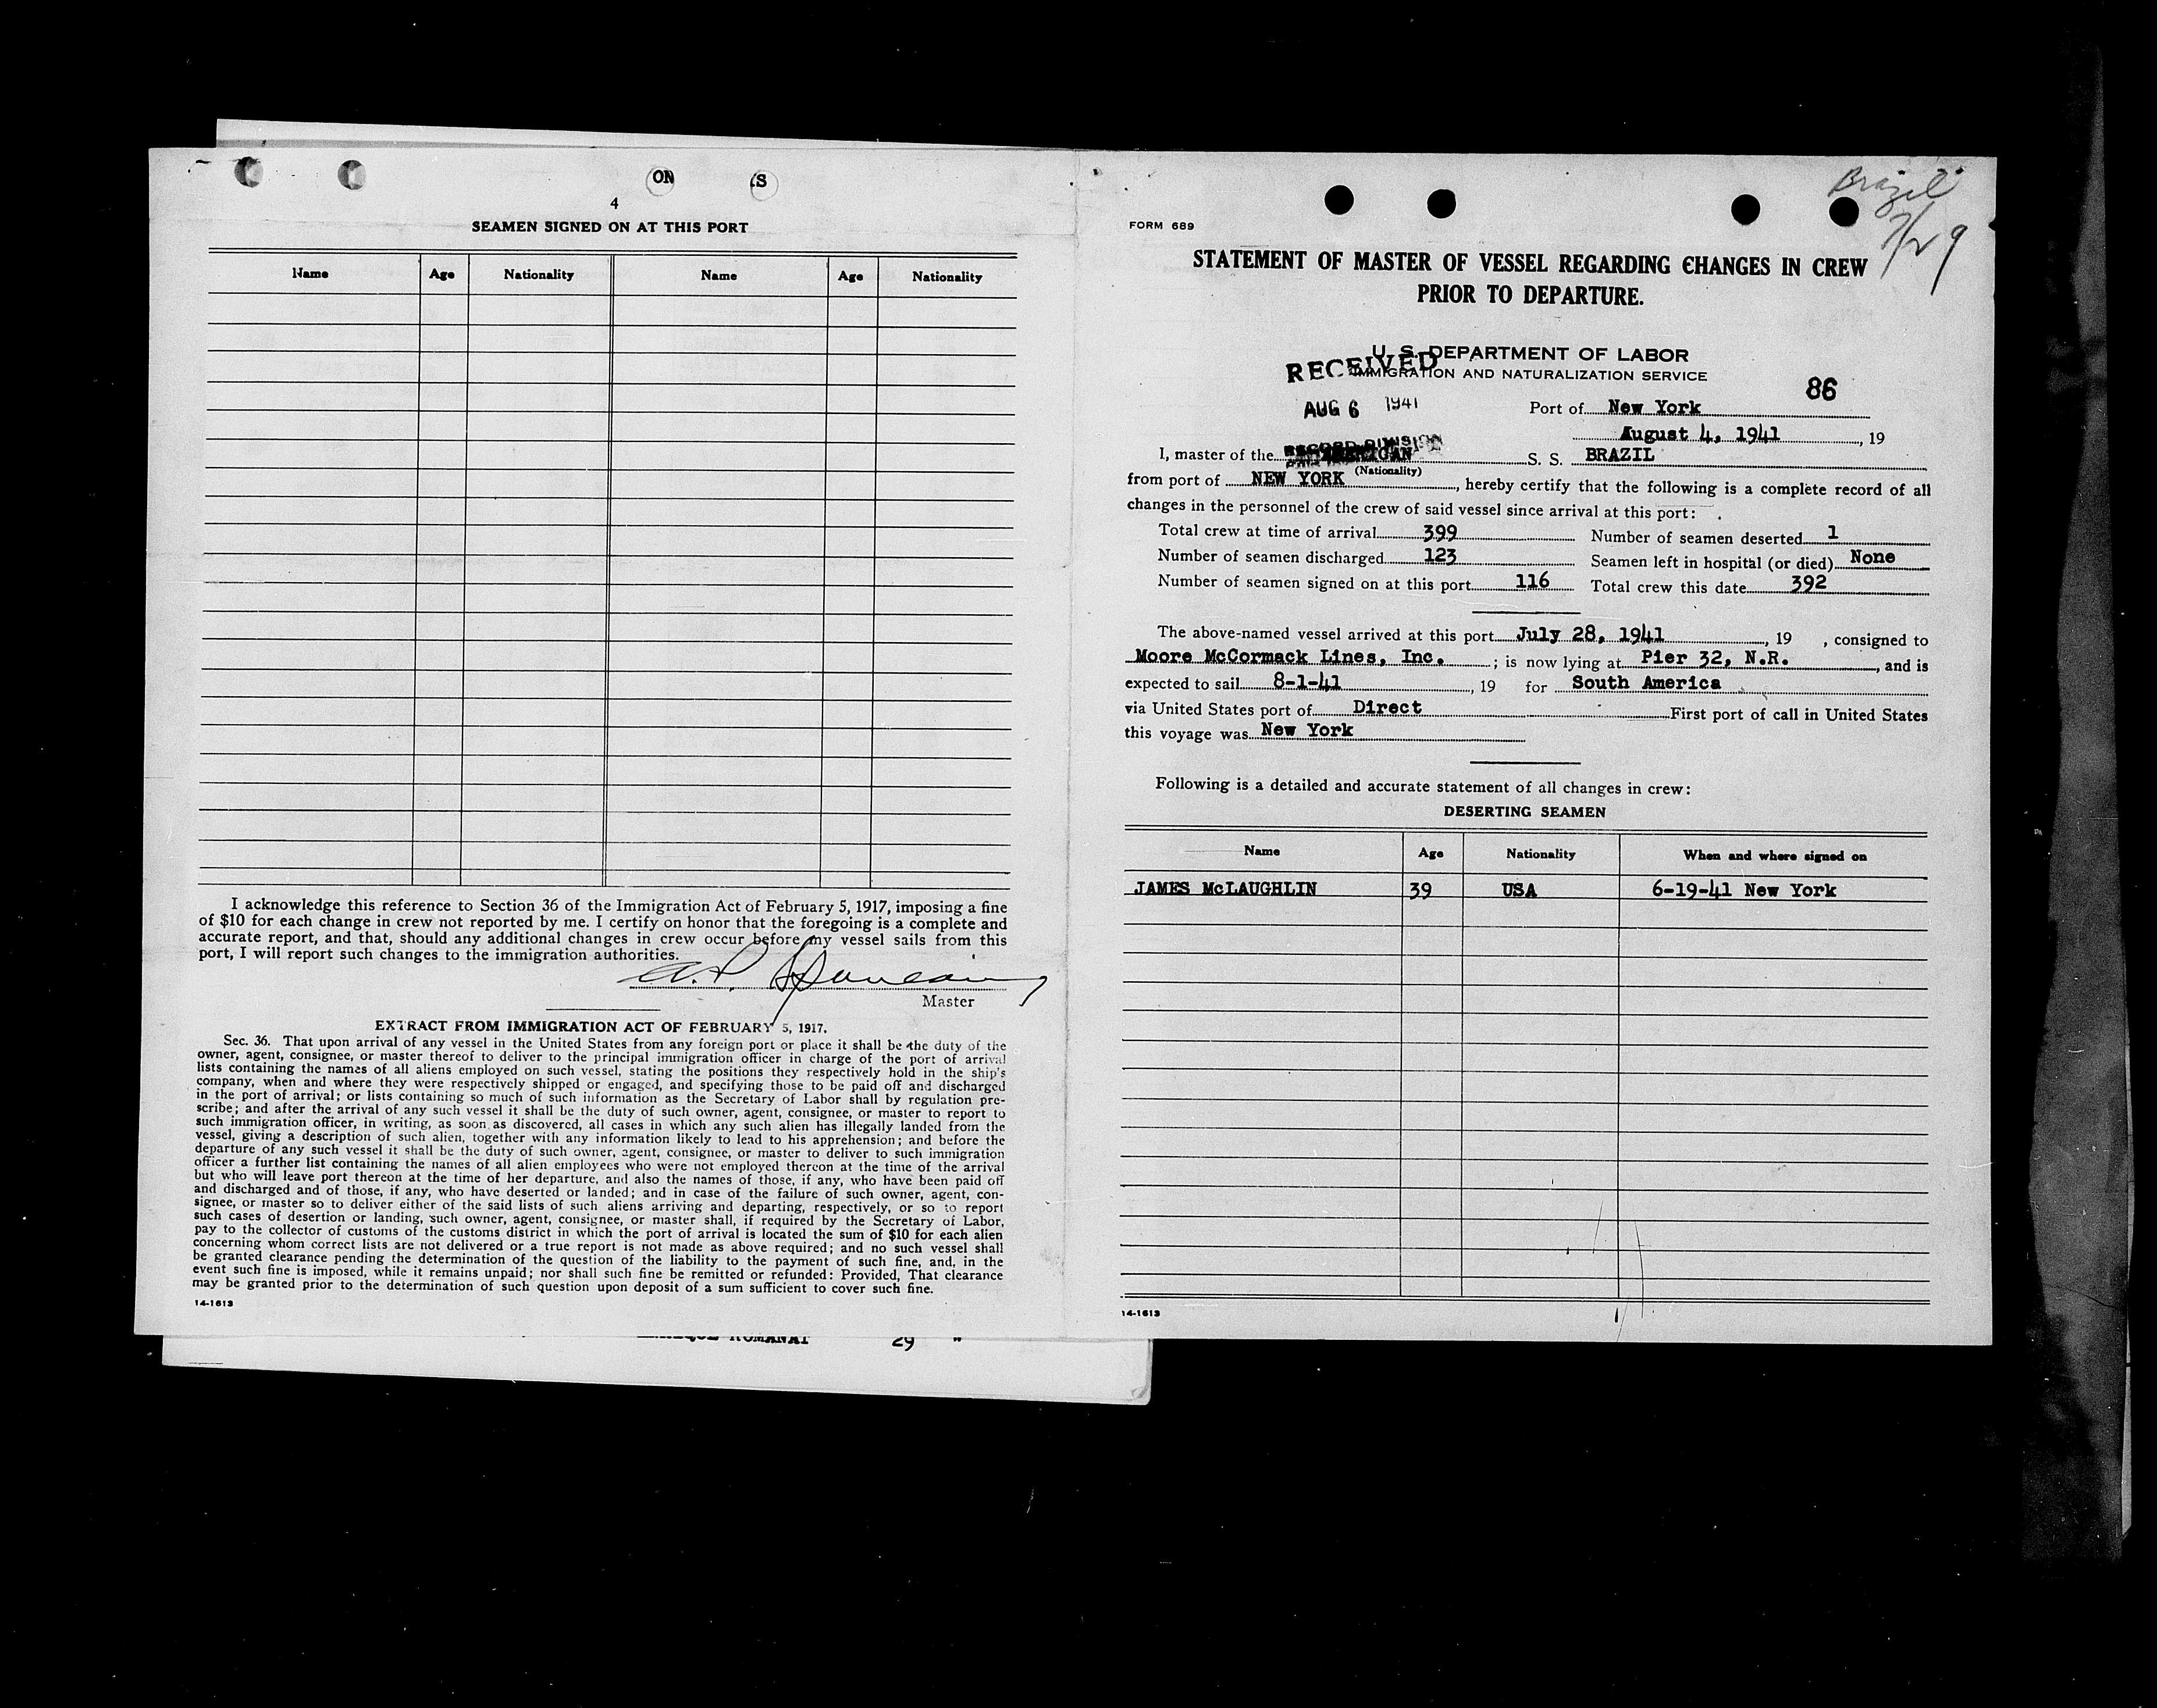 ON
S
4
SEAMEN SIGNED ON AT THIS PORT
Name Age Nationality Name Age Nationality
I acknowledge this reference to Section 36 of the Immigration Act of February 5, 1917, imposing a fine
of $10 for each change in crew not reported by me. I certify on honor that the foregoing is a complete and
accurate report, and that, should any additional changes in crew occur before my vessel sails from this
port, I will report such changes to the immigration authorities.
Master
EXTRACT FROM IMMIGRATION ACT OF FEBRUARY 5, 1917.
Sec. 36. That upon arrival of any vessel in the United States from any foreign port or place it shall be the duty of the
owner, agent, consignee, or master thereof to deliver to the principal immigration officer in charge of the port of arrival
lists containing the names of all aliens employed on such vessel, stating the positions they respectively hold in the ship's
company, when and where they were respectively shipped or engaged, and specifying those to be paid off and discharged
in the port of arrival; or lists containing so much of such information as the Secretary of Labor shall by regulation pre-
scribe; and after the arrival of any such vessel it shall be the duty of such owner, agent, consignee, or master to report to
such immigration officer, in writing, as soon as discovered, all cases in which any such alien has illegally landed from the
vessel, giving a description of such alien, together with any information likely to lead to his apprehension; and before the
departure of any such vessel it shall be the duty of such owner, agent, consignee, or master to deliver to such immigration
officer a further list containing the names of all alien employees who were not employed thereon at the time of the arrival
but who will leave port thereon at the time of her departure, and also the names of those, if any, who have been paid off
and discharged and of those, if any, who have deserted or landed; and in case of the failure of such owner, agent, con-
signee, or master so to deliver either of the said lists of such aliens arriving and departing, respectively, or so to report
such cases of desertion or landing, such owner, agent, consignee, or master shall, if required by the Secretary of Labor,
pay to the collector of customs of the customs district in which the port of arrival is located the sum of $10 for each alien
concerning whom correct lists are not delivered or a true report is not made as above required; and no such vessel shall
be granted clearance pending the determination of the question of the liability to the payment of such fine, and, in the
event such fine is imposed, while it remains unpaid; nor shall such fine be remitted or refunded: Provided, That clearance
may be granted prior to the determination of such question upon deposit of a sum sufficient to cover such fine.
14-1613
ROMANAI 29 "
Brazil
7/29
FORM 689
STATEMENT OF MASTER OF VESSEL REGARDING CHANGES IN CREW
PRIOR TO DEPARTURE.
U. S. DEPARTMENT OF LABOR
IMMIGRATION AND NATURALIZATION SERVICE
RECEIVED
AUG 6 1941
RECORD DIVISION
86
Port of New York
August 4, 1941, 19
I, master of the AMERICAN S. S. BRAZIL
(Nationality)
from port of NEW YORK, hereby certify that the following is a complete record of all
changes in the personnel of the crew of said vessel since arrival at this port:
Total crew at time of arrival 399 Number of seamen deserted 1
Number of seamen discharged 123 Seamen left in hospital (or died) None
Number of seamen signed on at this port 116 Total crew this date 392
The above-named vessel arrived at this port July 28, 1941, 19 , consigned to
Moore McCormack Lines, Inc. ; is now lying at Pier 32, N.R. , and is
expected to sail 8-1-41, 19 for South America
via United States port of Direct First port of call in United States
this voyage was New York
Following is a detailed and accurate statement of all changes in crew:
DESERTING SEAMEN
Name Age Nationality When and where signed on
JAMES McLAUGHLIN 39 USA 6-19-41 New York
14-1613